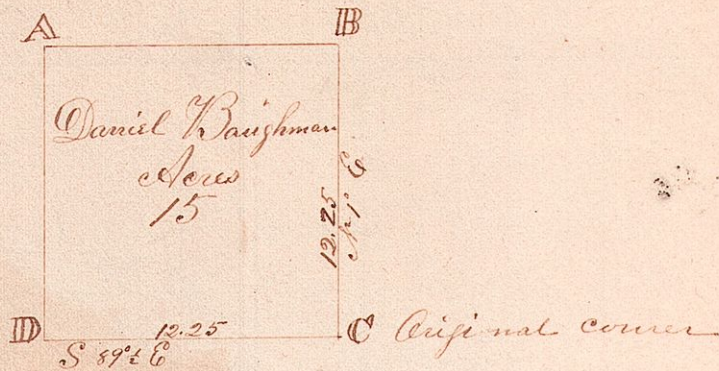 A B
Daniel Baughman
Acres
15
12.25
N 1° E
D 12.25 C Original corner
S 89°½ E